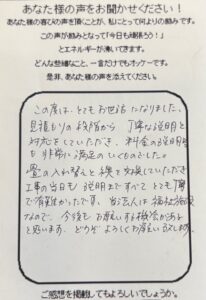 あなた様の声をお聞かせください！
あなた様の喜びの声を頂くことが、私にとって何よりの励みです。
この声が励みとなって「今日も頑張ろう！」
とエネルギーが沸いてきます。
どんな些細なこと、一言だけでもオッケーです。
是非、あなた様の声をお伝えください。
この度は、とてもお世話になりました。
見積もりの段階から丁寧な説明と
対応をしていただき、料金の説明も
非常に満足のいくものでした。
畳の入れ替えと襖を交換していただき
工事の当日も説明まですべてとても丁寧
で有難かったです。当法人は福祉施設
なので、今後もお願いする機会があると
思います。どうぞよろしくお願いいたします。
ご感想を掲載してもよろしいでしょうか。